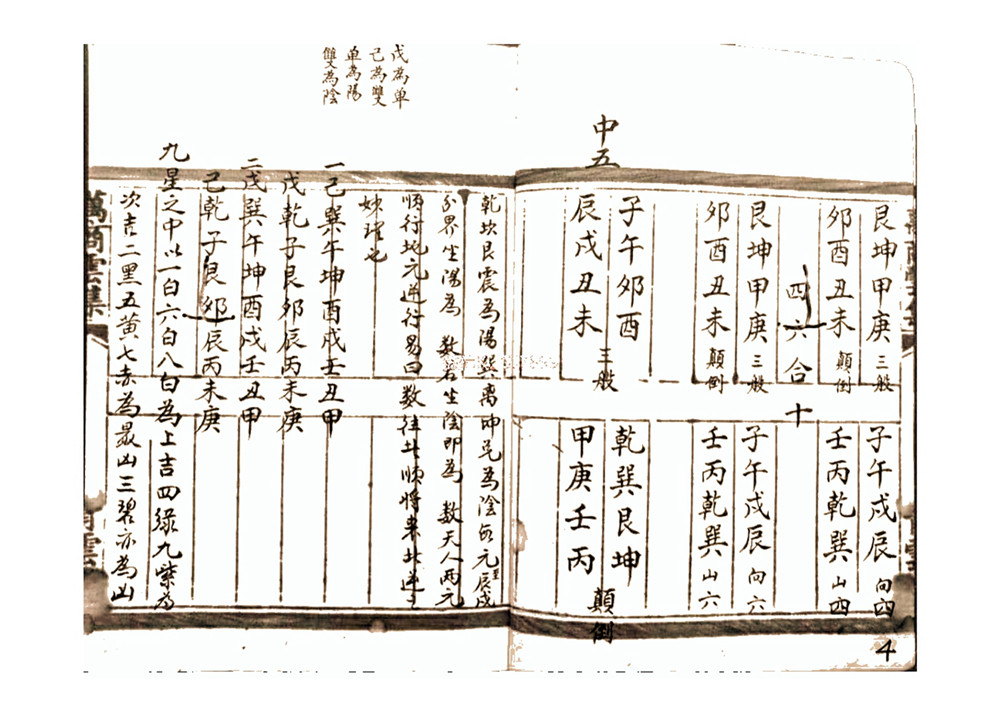 艮坤甲庚三般
子午戍辰向四
卯酉丑未顛倒
壬丙乾巽山四
四六合十
艮坤甲庚三般
子午戍辰向六
卯酉丑未顛倒
壬丙乾巽山六
中五
子午卯酉
乾巽艮坤
辰戍丑未
甲庚壬丙
三般
顛倒
4
乾坎艮震為陽巽离坤兑為陰每元辰戍
分界生陽為 数若生陰即為 数天人兩元
順行地元逆行易曰数往者順將来者逆
戊為单
己為雙
单為陽
雙為陰
一己巽午坤酉戍壬丑甲
戊乾子艮卯辰丙未庚
二戊巽午坤酉戍壬丑甲
己乾子艮卯辰丙未庚
九星之中以一白六白八白為上吉四綠九紫為
次吉二黑五黄七赤為最凶三碧亦為凶
萬商雲集